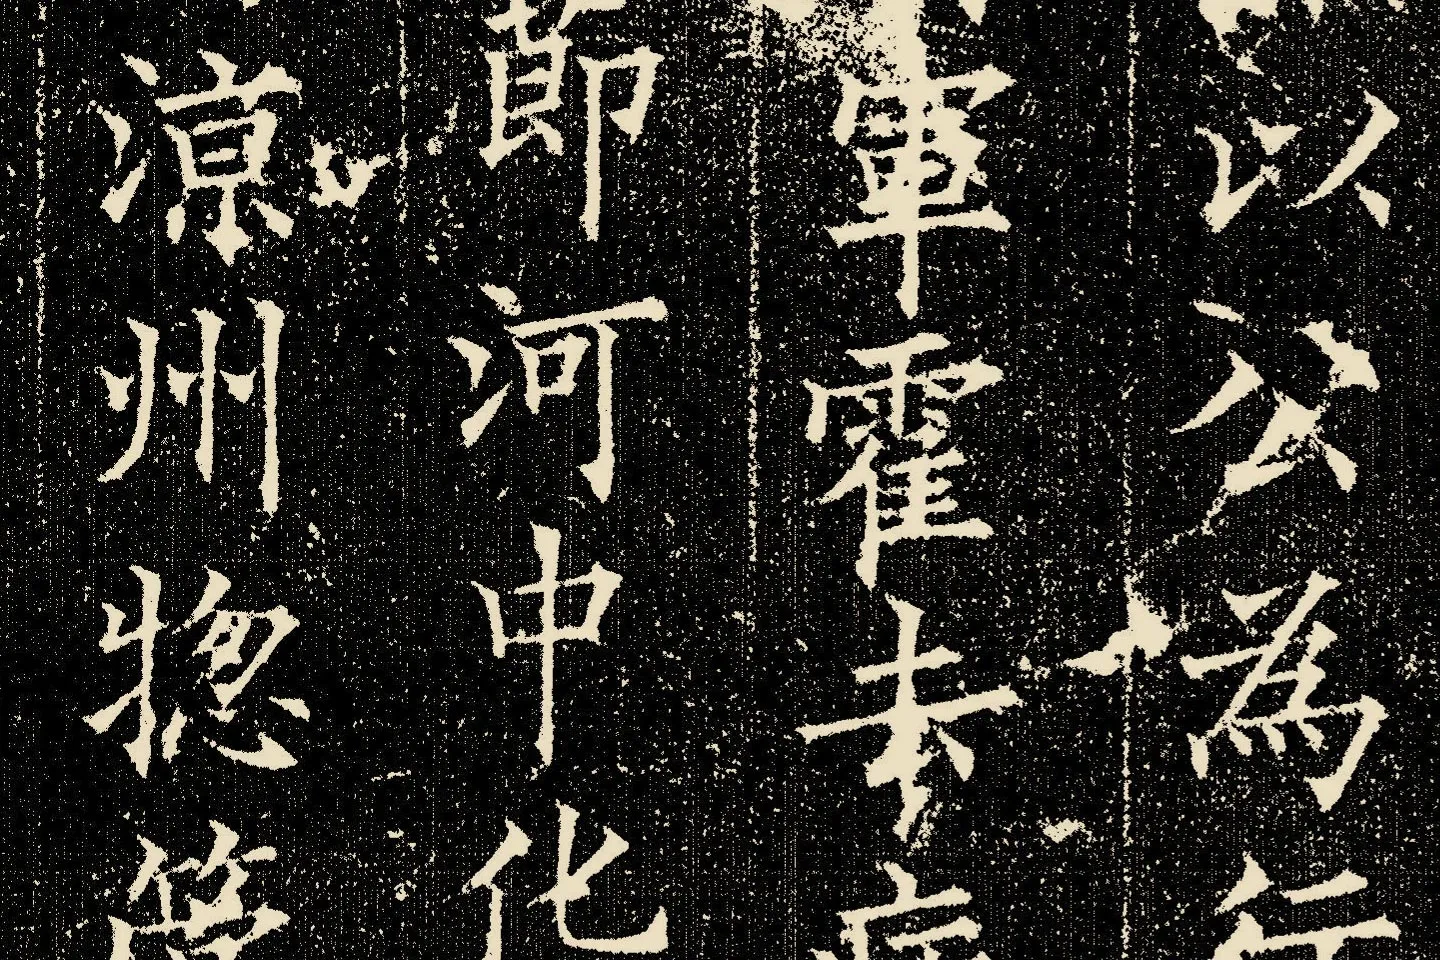 以公為行
軍霍去病
節河中化
涼州惣管